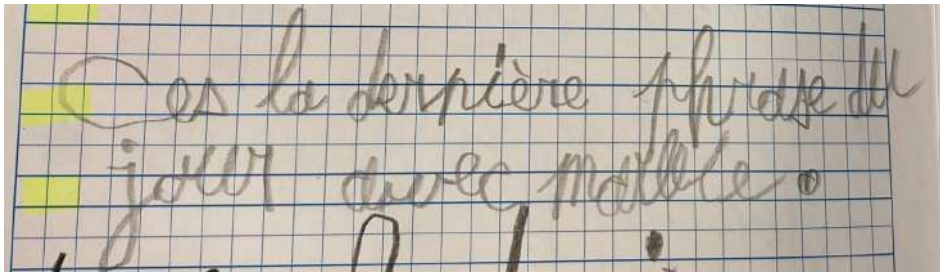 Ces la dernière phrase du
jour avec